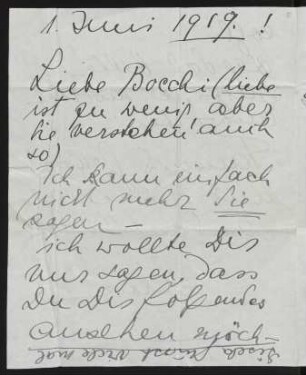 1. Juni 1919. !
Liebe Bocchi (liebe
ist zu wenig aber
Sie verstehen auch
so)
Ich kann einfach
nicht mehr Sie
sagen –
ich wollte Dir
nur sagen, dass
Du Dir folgendes
ansehen möch-